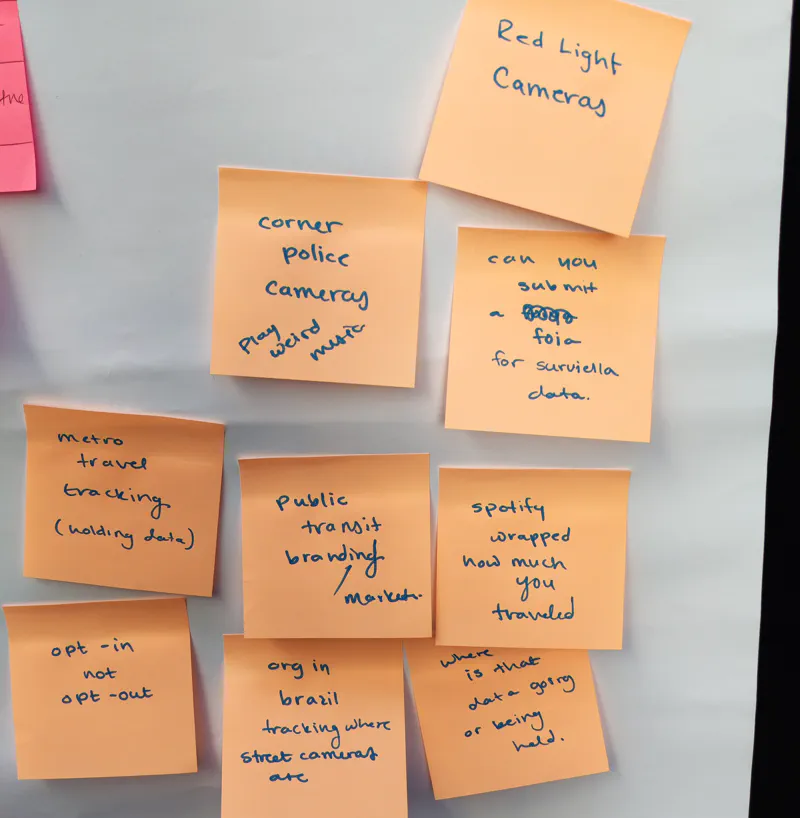 the
Red Light
Cameras
corner
police
cameras
play
weird
music
can you
submit
a
foia
for surviella
data.
metro
travel
tracking
(holding data)
public
transit
branding
market.
spotify
wrapped
how much
you
traveled
opt-in
not
opt-out
org in
brazil
tracking where
street cameras
are
where
is that
data going
or being
held.